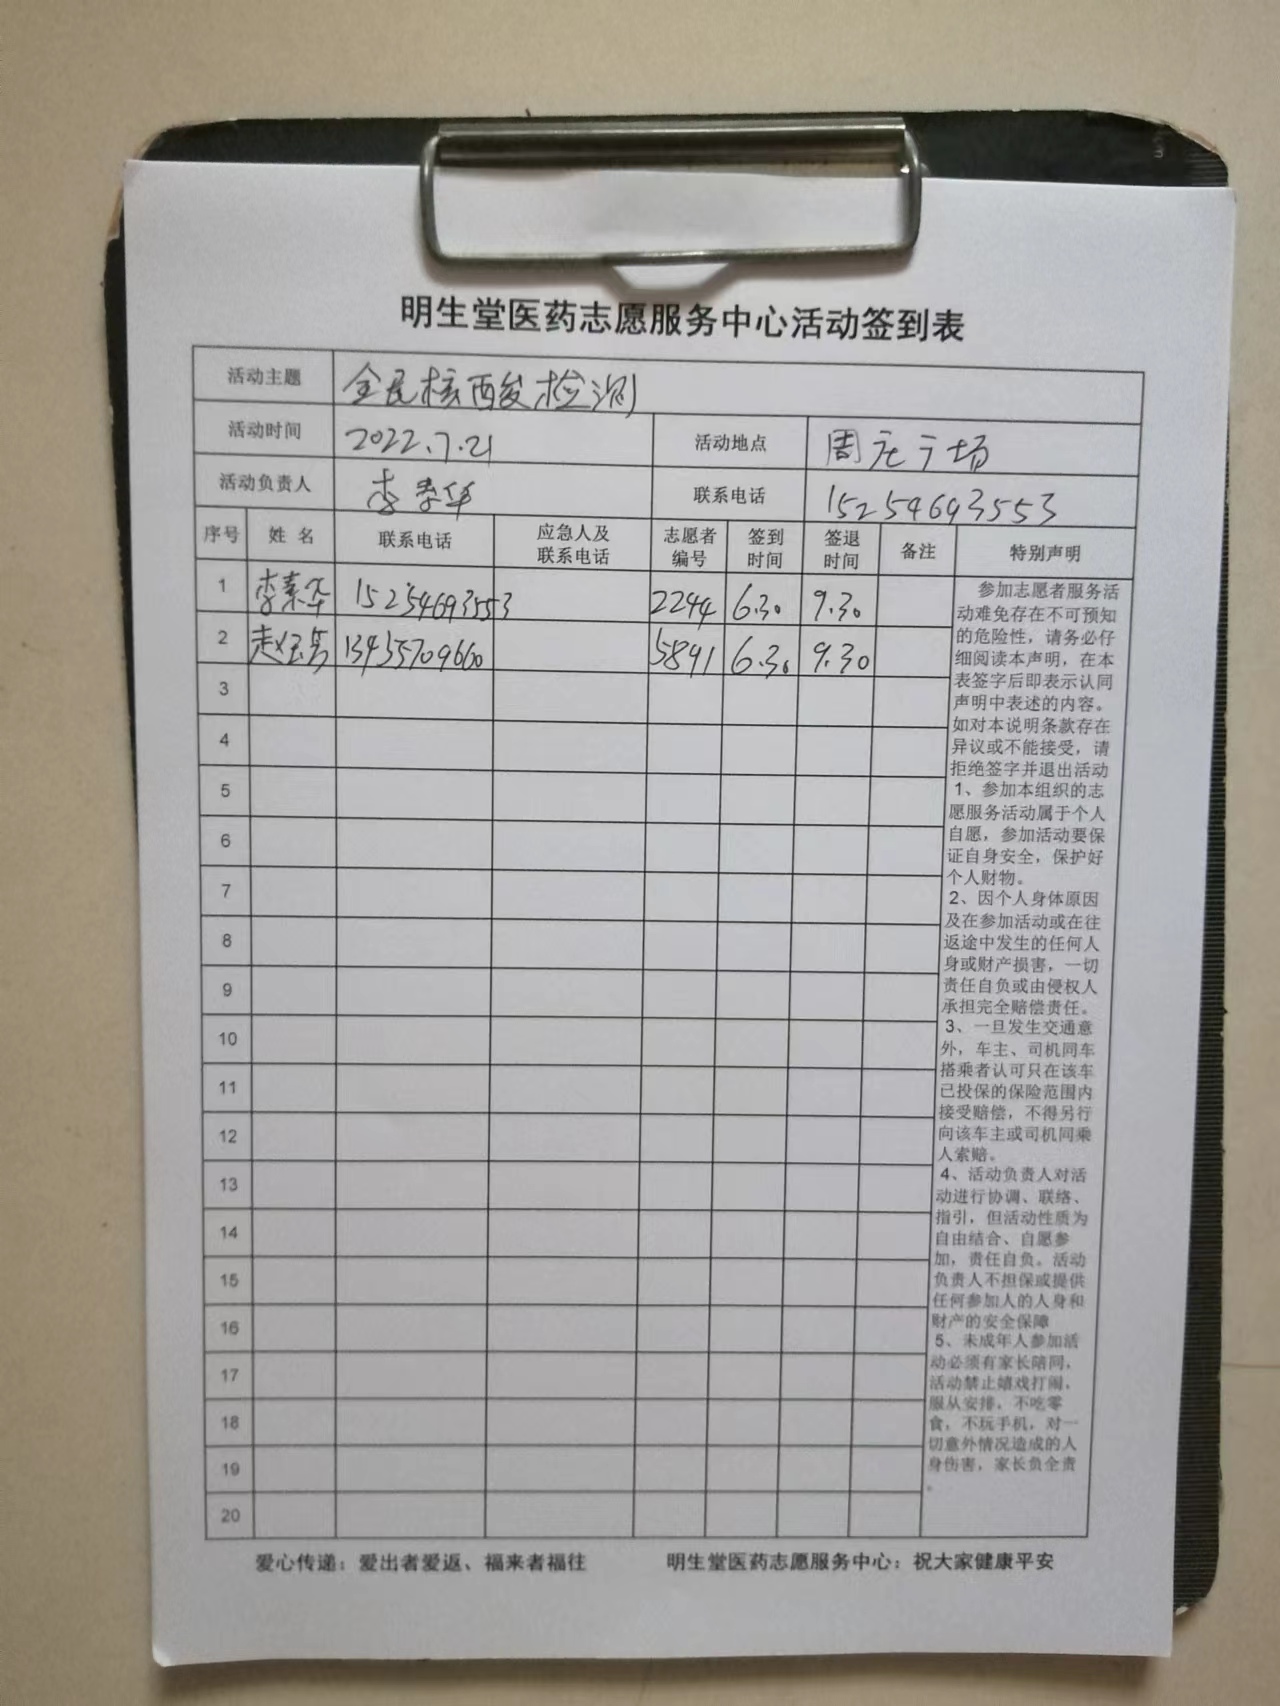 明生堂医药志愿服务中心活动签到表
活动主题 全民核酸检测
活动时间 2022.7.21 活动地点 周庄广场
活动负责人 李素华 联系电话 15254693553
序号 姓名 联系电话 应急人及联系电话 志愿者编号 签到时间 签退时间 备注 特别声明
1 李素华 15254693553 2244 6.30 9.30
2 赵 13455709660 5891 6.30 9.30
3
4
5
6
7
8
9
10
11
12
13
14
15
16
17
18
19
20
参加志愿者服务活
动难免存在不可预知
的危险性，请务必仔
细阅读本声明，在本
表签字后即表示认同
声明中表述的内容。
如对本说明条款存在
异议或不能接受，请
拒绝签字并退出活动
1、参加本组织的志
愿服务活动属于个人
自愿，参加活动要保
证自身安全，保护好
个人财物。
2、因个人身体原因
及在参加活动或在往
返途中发生的任何人
身或财产损害，一切
责任自负或由侵权人
承担完全赔偿责任。
3、一旦发生交通意
外，车主、司机同车
搭乘者认可只在该车
已投保的保险范围内
接受赔偿，不得另行
向该车主或司机同乘
人索赔。
4、活动负责人对活
动进行协调、联络、
指引，但活动性质为
自由结合、自愿参
加，责任自负。活动
负责人不担保或提供
任何参加人的人身和
财产的安全保障
5、未成年人参加活
动必须有家长陪同，
活动禁止嬉戏打闹，
服从安排，不吃零
食，不玩手机，对一
切意外情况造成的人
身伤害，家长负全责
。
爱心传递：爱出者爱返、福来者福往 明生堂医药志愿服务中心：祝大家健康平安